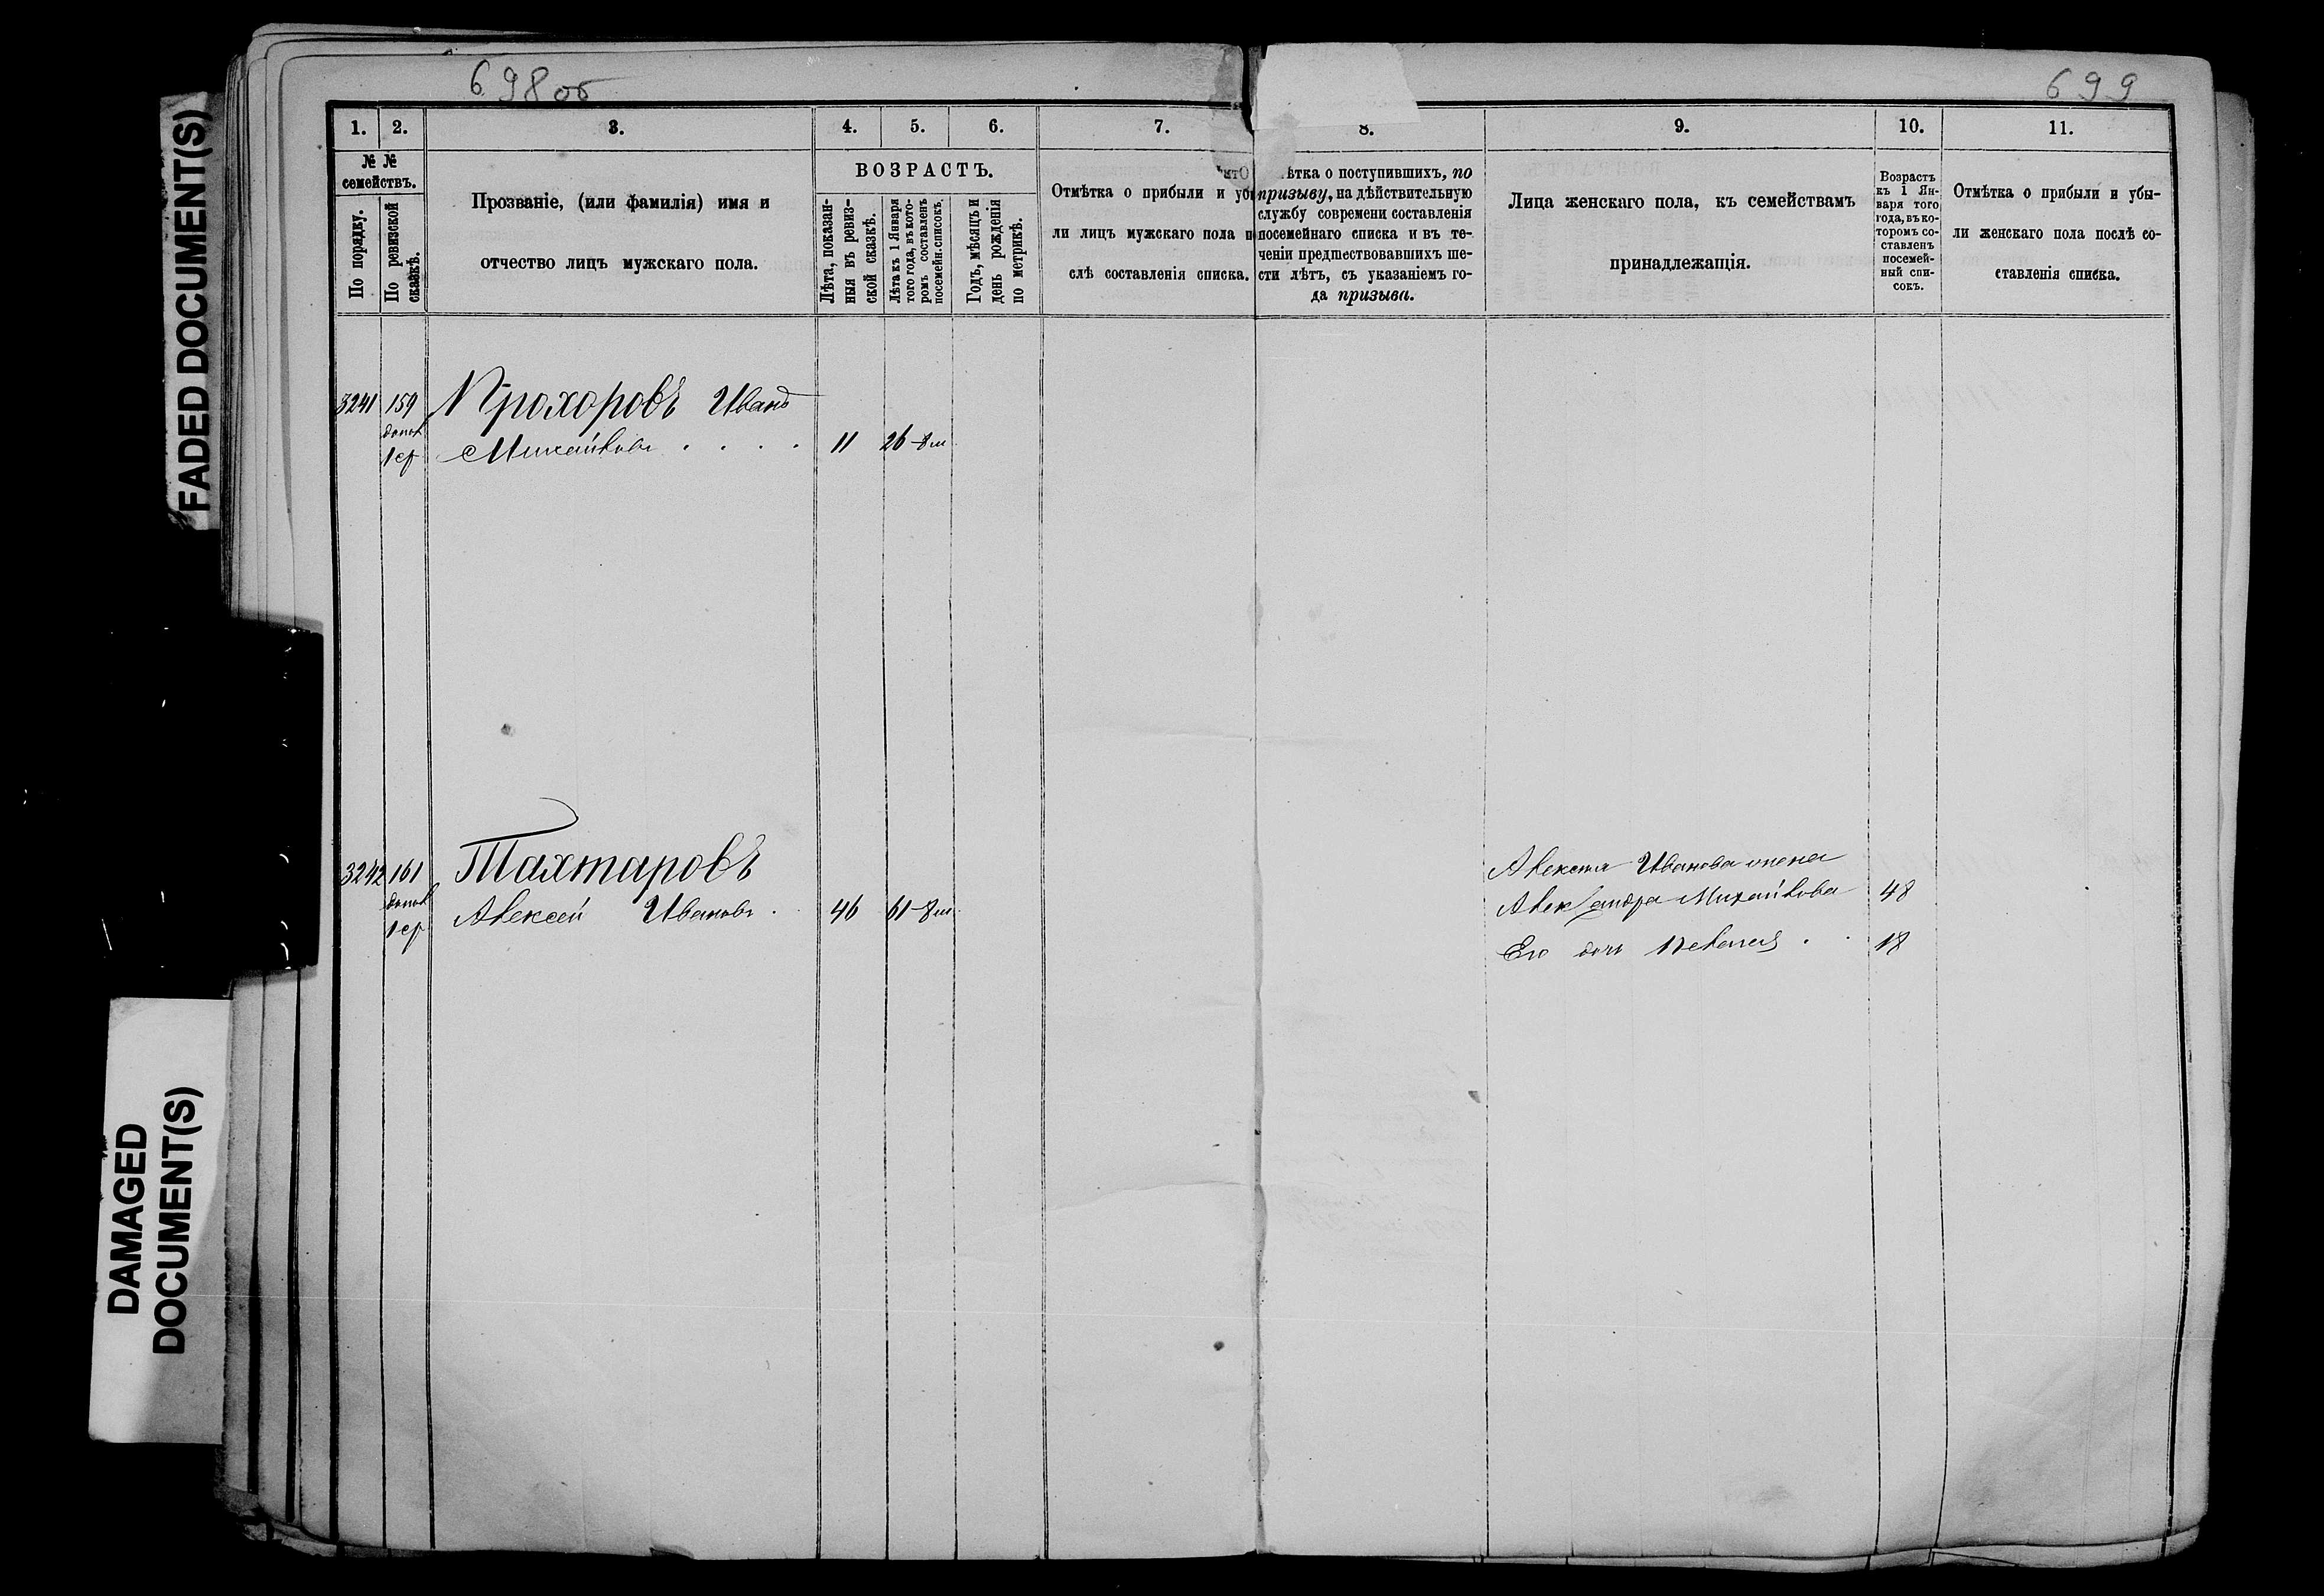 698 об
699
FADED DOCUMENT(S)
DAMAGED
DOCUMENT(S)
1.
2.
3.
4.
5.
6.
7.
8.
9.
10.
11.
№ №
семействъ.
По порядку.
По ревизской
сказкѣ.
Прозваніе, (или фамилія) имя и
отчество лицъ мужскаго пола.
ВОЗРАСТЪ.
Лѣта, показан-
ныя въ ревиз-
ской сказкѣ.
Лѣта къ 1 Января
того года, въ кото-
ромъ составленъ
посемейн. списокъ.
Годъ, мѣсяцъ и
день рожденія
по метрикѣ.
Отмѣтка о прибыли и убы
ли лицъ мужскаго пола п
слѣ составленія списка.
ѣтка о поступившихъ, по
призыву, на дѣйствительную
службу современи составленія
посемейнаго списка и въ те-
ченіи предшествовавшихъ ше-
сти лѣтъ, съ указаніемъ го-
да призыва.
Лица женскаго пола, къ семействамъ
принадлежащія.
Возрастъ
къ 1 Ян-
варя того
года, въ ко-
торомъ со-
ставленъ
посемей-
ный спи-
сокъ.
Отмѣтка о прибыли и убы-
ли женскаго пола послѣ со-
ставленія списка.
3241 159 Прохоровъ Иванъ
допол
1 ср Михайловъ . . . . 11 26-8 м
3242 161 Тахтаровъ
допол
1 ср Алексей Ивановъ . 46 61-8 м
Алексѣя Иванова жена
Александра Михайлова 48
Его дочь Пелагея . . 18